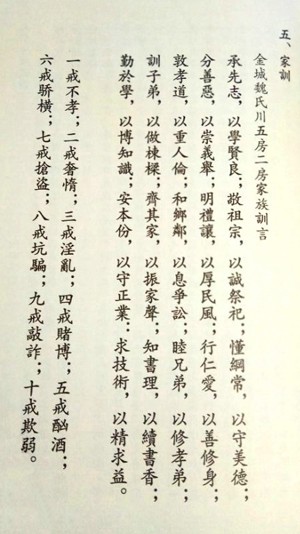 五、家訓
金城魏氏川五房二房家族訓言
承先志，以學賢良；敬祖宗，以誠祭祀；懂綱常，以守美德；
分善惡，以崇義舉；明禮讓，以厚民風；行仁愛，以善修身；
敦孝道，以重人倫；和鄉鄰，以息爭訟；睦兄弟，以修孝弟；
訓子弟，以做棟樑；齊其家，以振家聲；知書理，以續書香；
勤於學，以博知識；安本份，以守正業：求技術，以精求益。
一戒不孝；二戒奢惰；三戒淫亂；四戒賭博；五戒酗酒；
六戒骄橫；七戒搶盜；八戒坑騙；九戒敲詐；十戒欺弱。